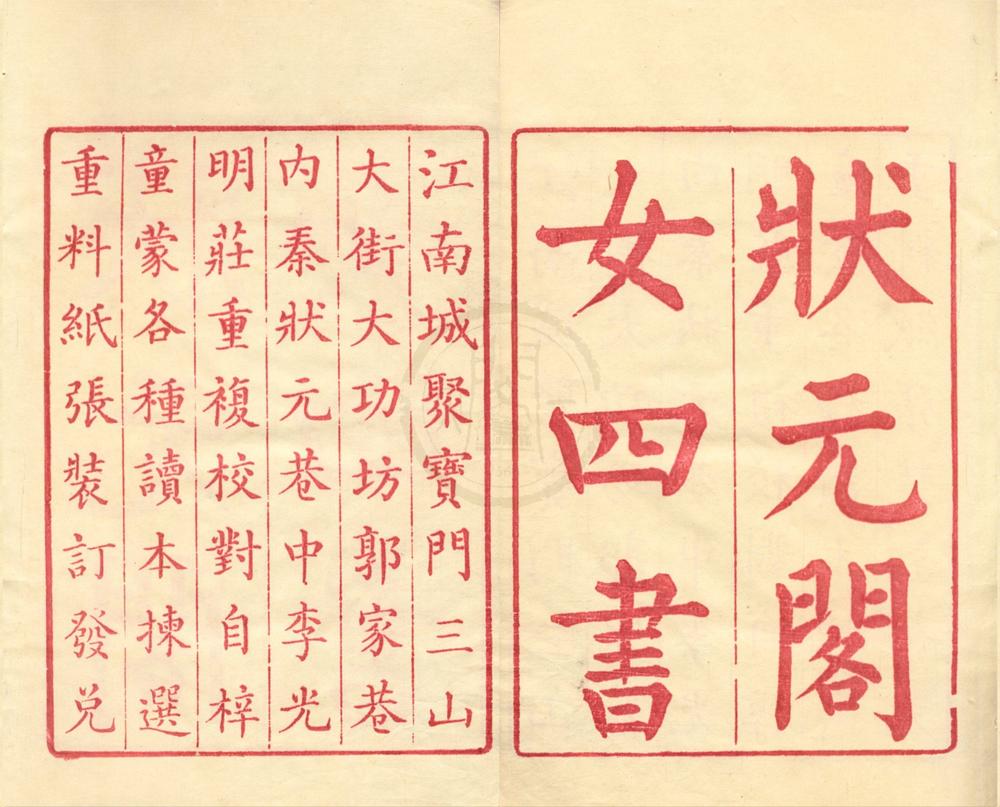 狀元閣
女四書
江南城聚寶門三山
大街大功坊郭家巷
内秦狀元巷中李光
明莊重複校對自梓
童蒙各種讀本揀選
重料紙張裝訂發兌